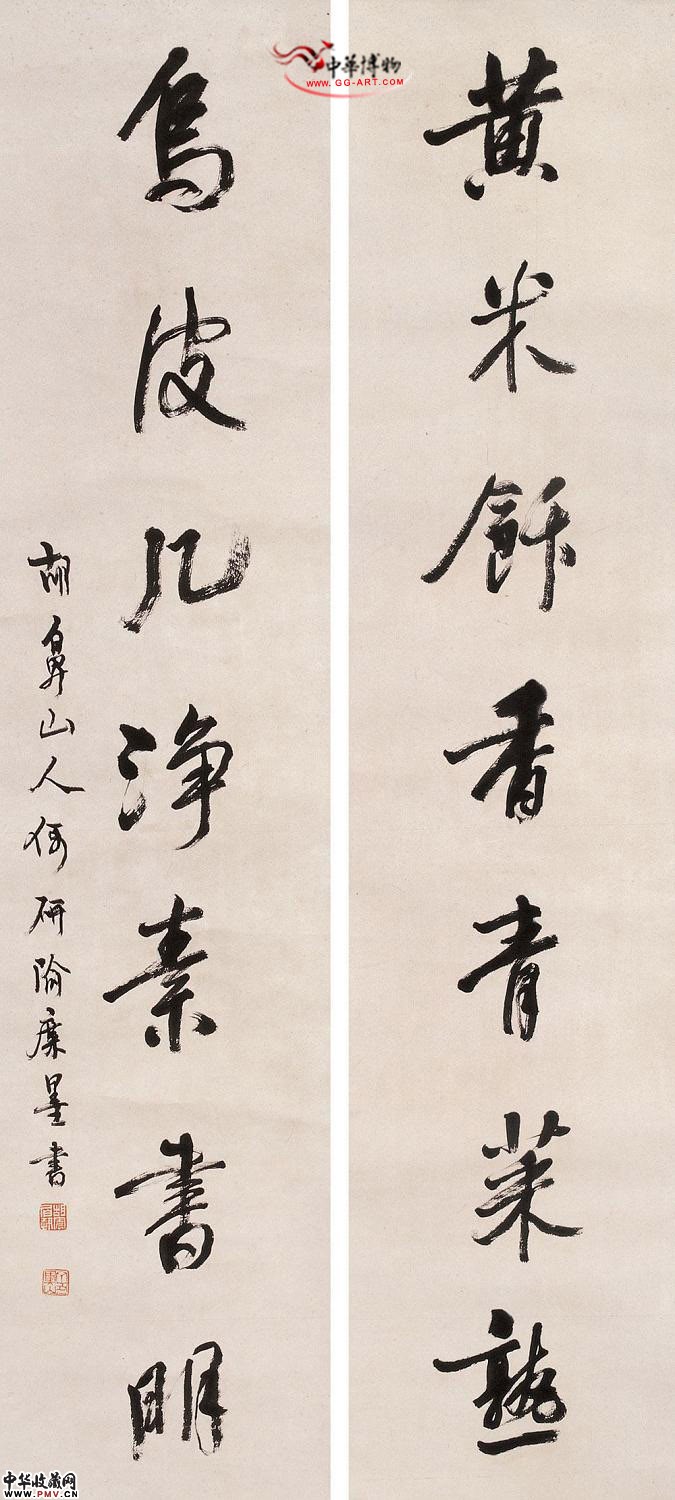 中華博物
WWW.GG-ART.COM
黄米飰香青菜熟
烏皮几淨素書明
胡鼻山人研隃麋墨書
中华收藏网
WWW.PMV.CN